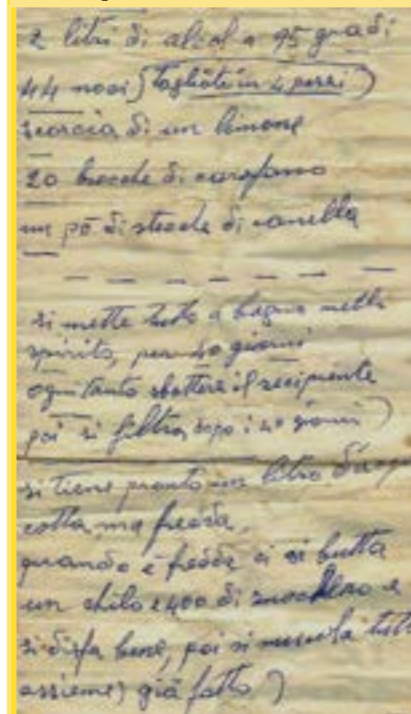 2 litri di alcol a 95 gradi
44 noci (tagliate in 4 pezzi)
scorcia di un limone
20 brocche di carofano
un pō di stecche di canella
si mette tutto a bagno nello
spirito, per 40 giorni
ogni tanto sbattere il recipiente
poi si filtra dopo i 40 giorni)
si tiene pronto un litro d'acqu
cotta, ma fredda,
quando è fredda ci si butta
un chilo e 400 di zucchero e
si disfa bene, poi si mescola tutto
assieme) già fatto)